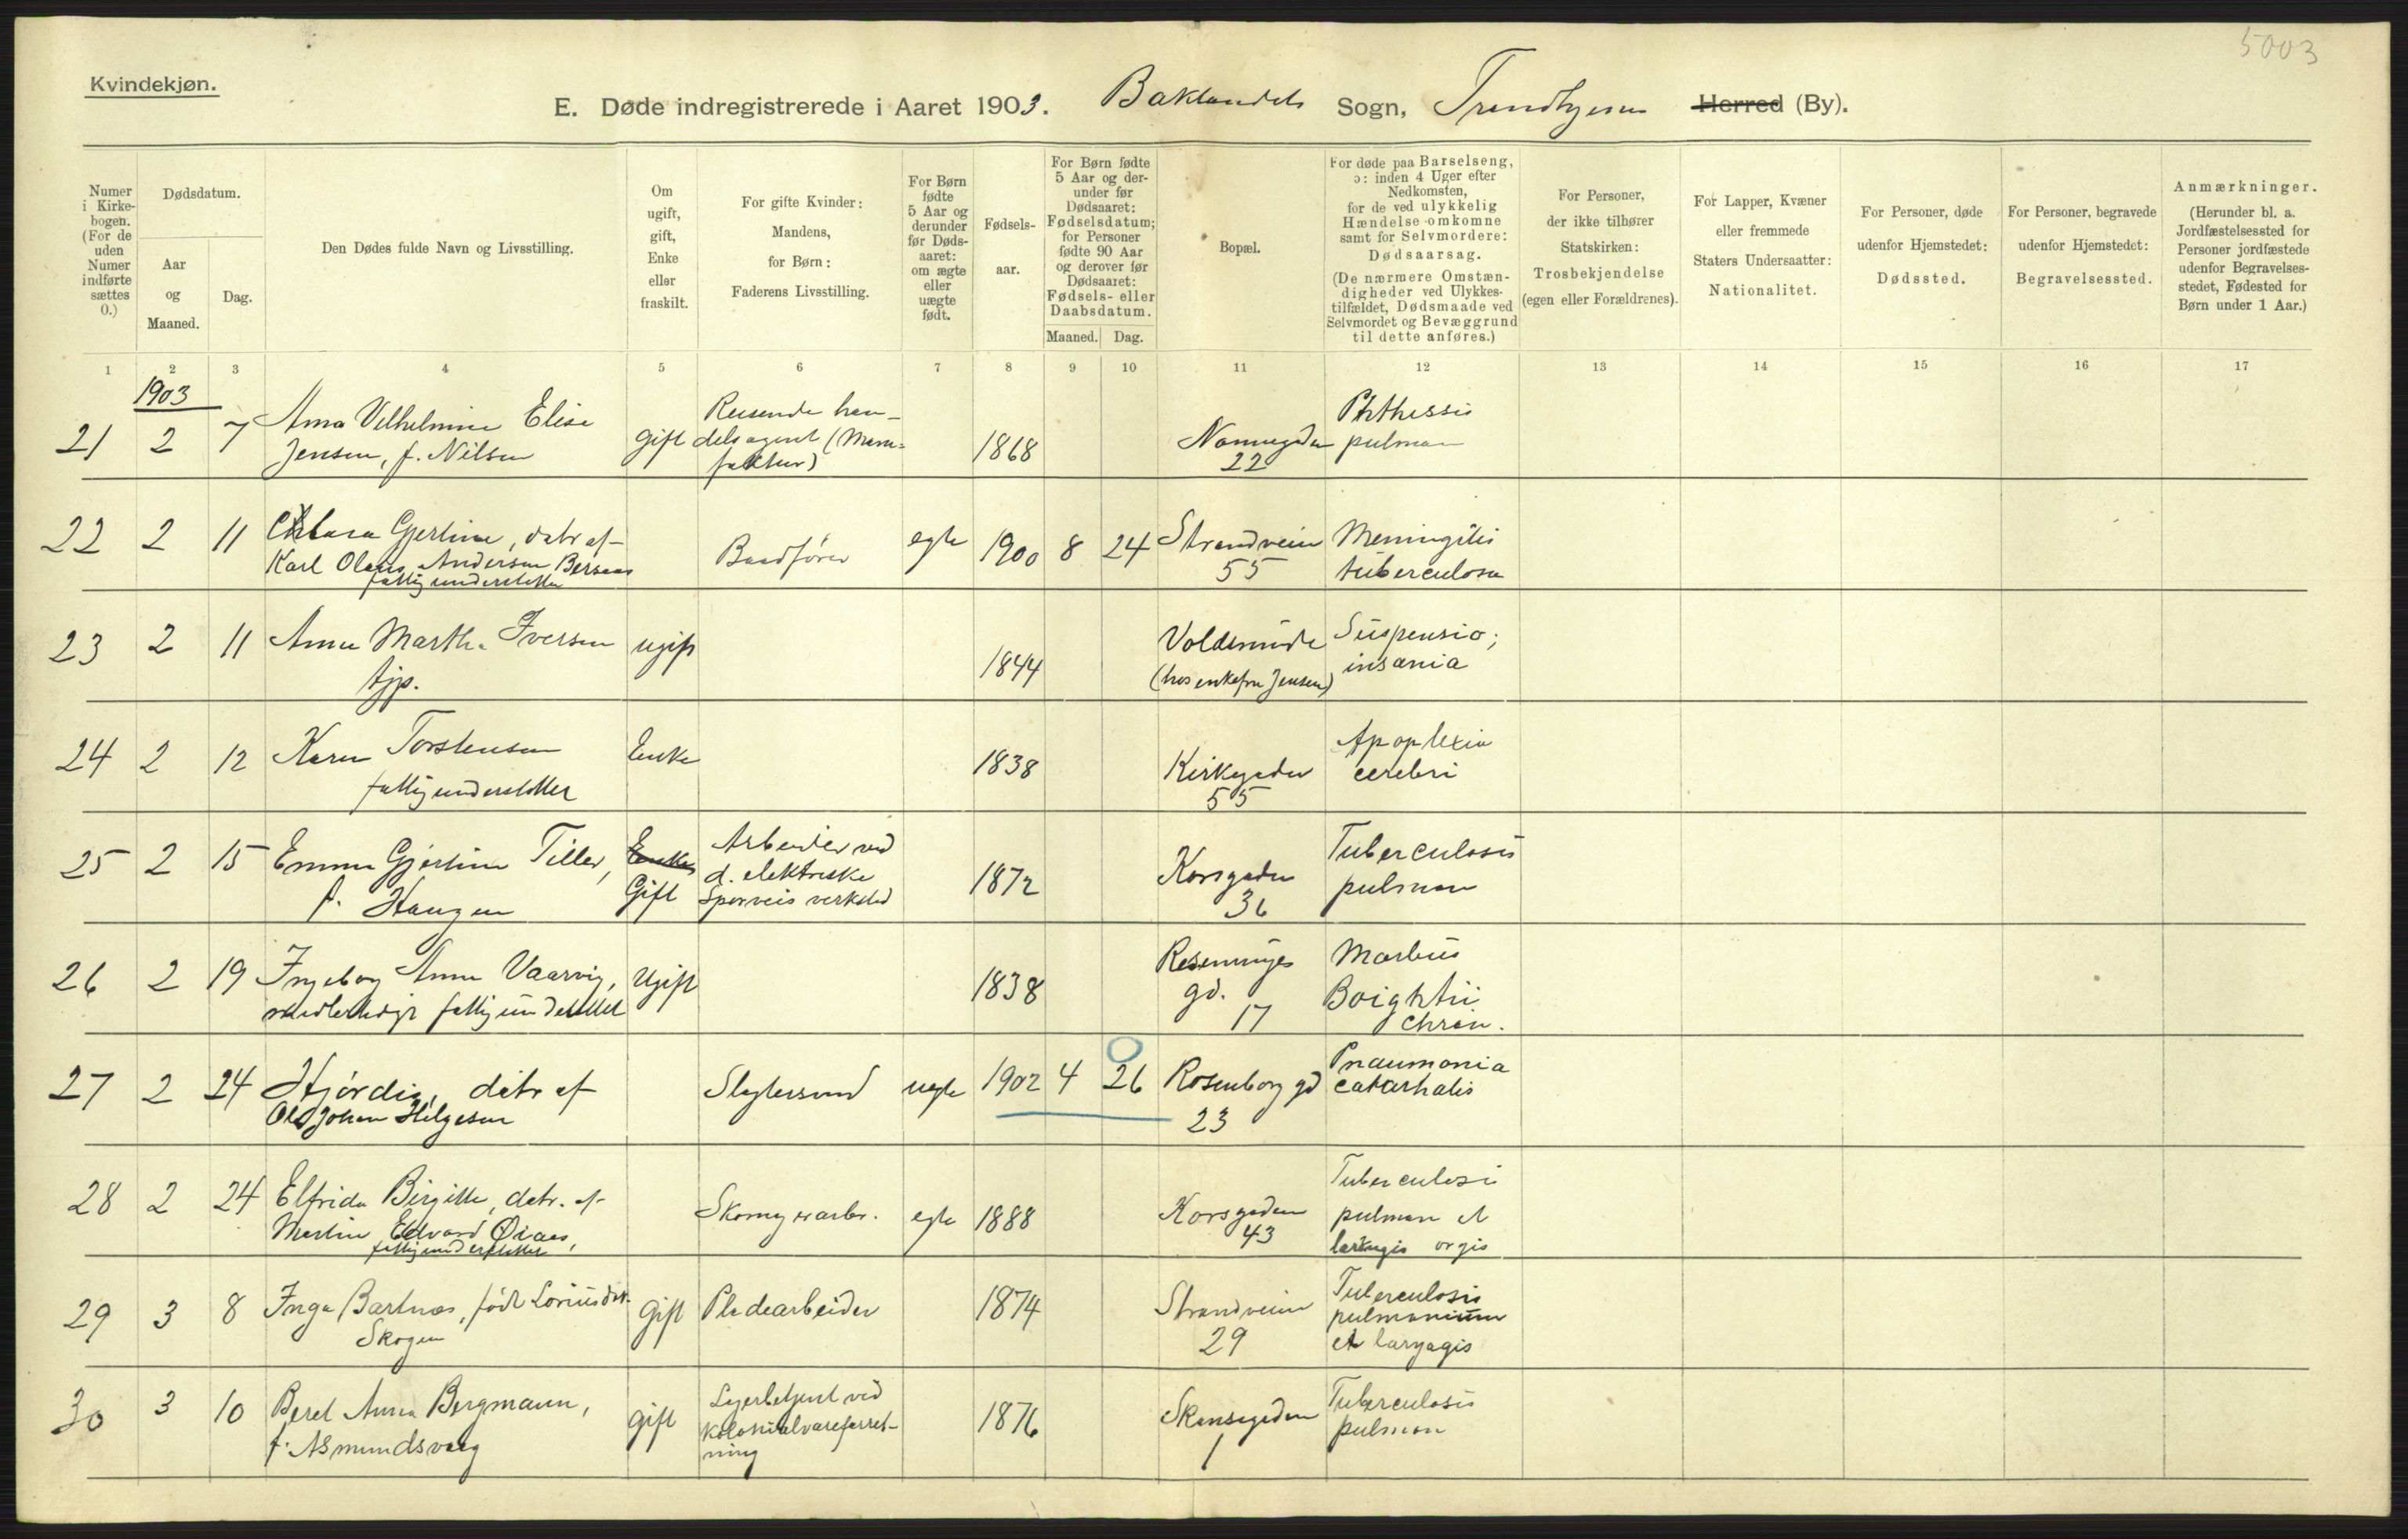 5003
Kvindekjøn.
E. Døde indregistrerede i Aaret 1903. Baklandets Sogn, Trondhjem Herred (By).
Numer i Kirkebogen. (For de uden Numer indførte sættes 0.)
Dødsdatum.
Aar og Maaned.
Dag.
Den Dødes fulde Navn og Livsstilling.
Om ugift, gift, Enke eller fraskilt.
For gifte Kvinder: Mandens, for Børn: Faderens Livsstilling.
For Børn fødte 5 Aar og derunder før Dødsaaret: om ægte eller uægte født.
Fødselsaar.
For Børn fødte 5 Aar og derunder før Dødsaaret: Fødselsdatum; for Personer fødte 90 Aar og derover før Dødsaaret: Fødsels- eller Daabsdatum.
Maaned. Dag.
Bopæl.
For døde paa Barselseng, ɔ: inden 4 Uger efter Nedkomsten, for de ved ulykkelig Hændelse omkomne samt for Selvmordere: Dødsaarsag. (De nærmere Omstændigheder ved Ulykkestilfældet, Dødsmaade ved Selvmordet og Bevæggrund til dette anføres.)
For Personer, der ikke tilhører Statskirken: Trosbekjendelse (egen eller Forældrenes).
For Lapper, Kvæner eller fremmede Staters Undersaatter: Nationalitet.
For Personer, døde udenfor Hjemstedet: Dødssted.
For Personer, begravede udenfor Hjemstedet: Begravelsessted.
Anmærkninger. (Herunder bl. a. Jordfæstelsessted for Personer jordfæstede udenfor Begravelsesstedet, Fødested for Børn under 1 Aar.)
1 2 3 4 5 6 7 8 9 10 11 12 13 14 15 16 17
1903
21 2 7 Anna Vilhelmine Elise
Jensen, f. Nilsen
gift
Reisende han-
delsagent (Manu-
faktur)
1868
Nonnegaden
22
Phthissis
pulmon
22 2 11 Clara Gjertine, datr af
Karl Olaus Andersen Bersaas
fattigunderstøttet
Baadfører
egte 1900 8 24
Strandveien
55
Meningitis
tuberculosa
23 2 11 Anne Martha Iversen
tjp.
ugift
1844
Voldsminde
(hos enkefru Jensen)
Suspensio;
insania
24 2 12 Karen Torstensen
fattigunderstøttet
Enke
1838
Kirkegaden
55
Apoplexia
cerebri
25 2 15 Emma Gjertine Tiller,
f. Haugen
Enke
Gift
Arbeider ved
d. elektriske
Sporveis verksted
1872
Korsgaden
36
Tuberculosis
pulmon
26 2 19 Ingeborg Anna Vaarvig,
fattigunderstøttet
Ugift
1838
gd.
17
Morbus
Boightii
chron.
27 2 24 Hjørdis, datr af
Ole Johan Helgesen
Slagtersvend
uegte 1902 4 26
Rosenborg gd
23
Pnaumonia
catarhalis
28 2 24 Elfrida Birgitte, datr. af
Martin Edvard Øiaas,
fattigunderstøttet
Skomagerarbr.
egte 1888
Korsgaden
43
Tuberculosis
pulmon et
29 3 8 Inga Bartnæs, født Loriusdatr.
Skogen
Gift Pladearbeider
1874
Strandveien
29
Tuberculosis
pulmonium
et laryagis
30 3 10 Beret Anna Bergmann,
f. Asmundsvaag
gift
Lagerbetjent ved
kolonialvareforret-
ning
1876
Skansegaden
1
Tuberculosis
pulmon